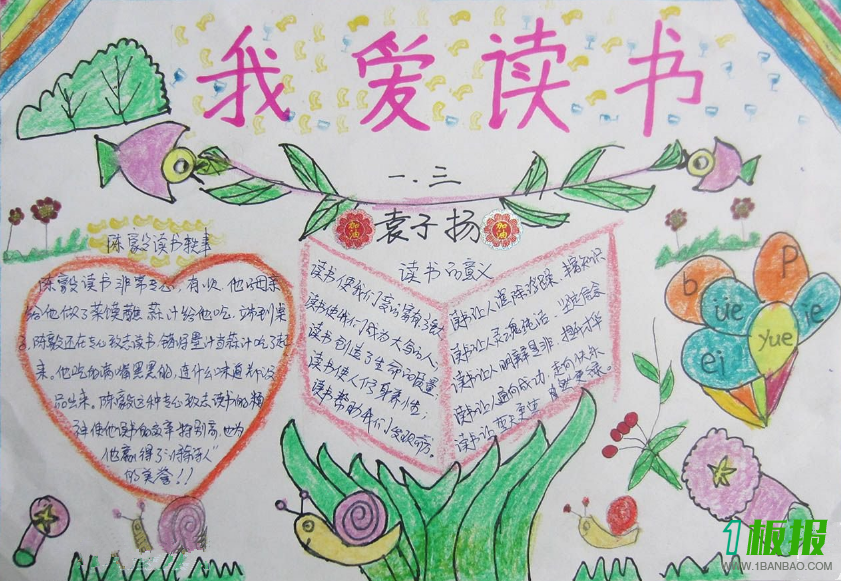 我爱读书
一.三
袁子扬
加油
加油
陈毅读书轶事
陈毅读书非常专心,有一次,他母亲
给他做了菜馍蘸蒜汁给他吃,端到桌
陈毅还在专心致志读书,错将墨汁当蒜汁吃了起
来。他吃的满嘴黑黑的,连什么味道都没
品出来。陈毅这种专心致志读书的精
神使他读书的效率特别高,也为
他赢得了"诗人"
的美誉!!
读书的意义
读书使我们变的富有
读书使我们成为大写的人
读书创造了生命的质量
读书使人们身康心怡;
读书帮助我们发现
读书让人,摘知识
读书让人灵魂纯洁
读书让人明辨是非
读书让人通向成功,走向快乐
读书让
b
p
üe
ie
yue
ei
1板报
WWW.1BANBAO.COM